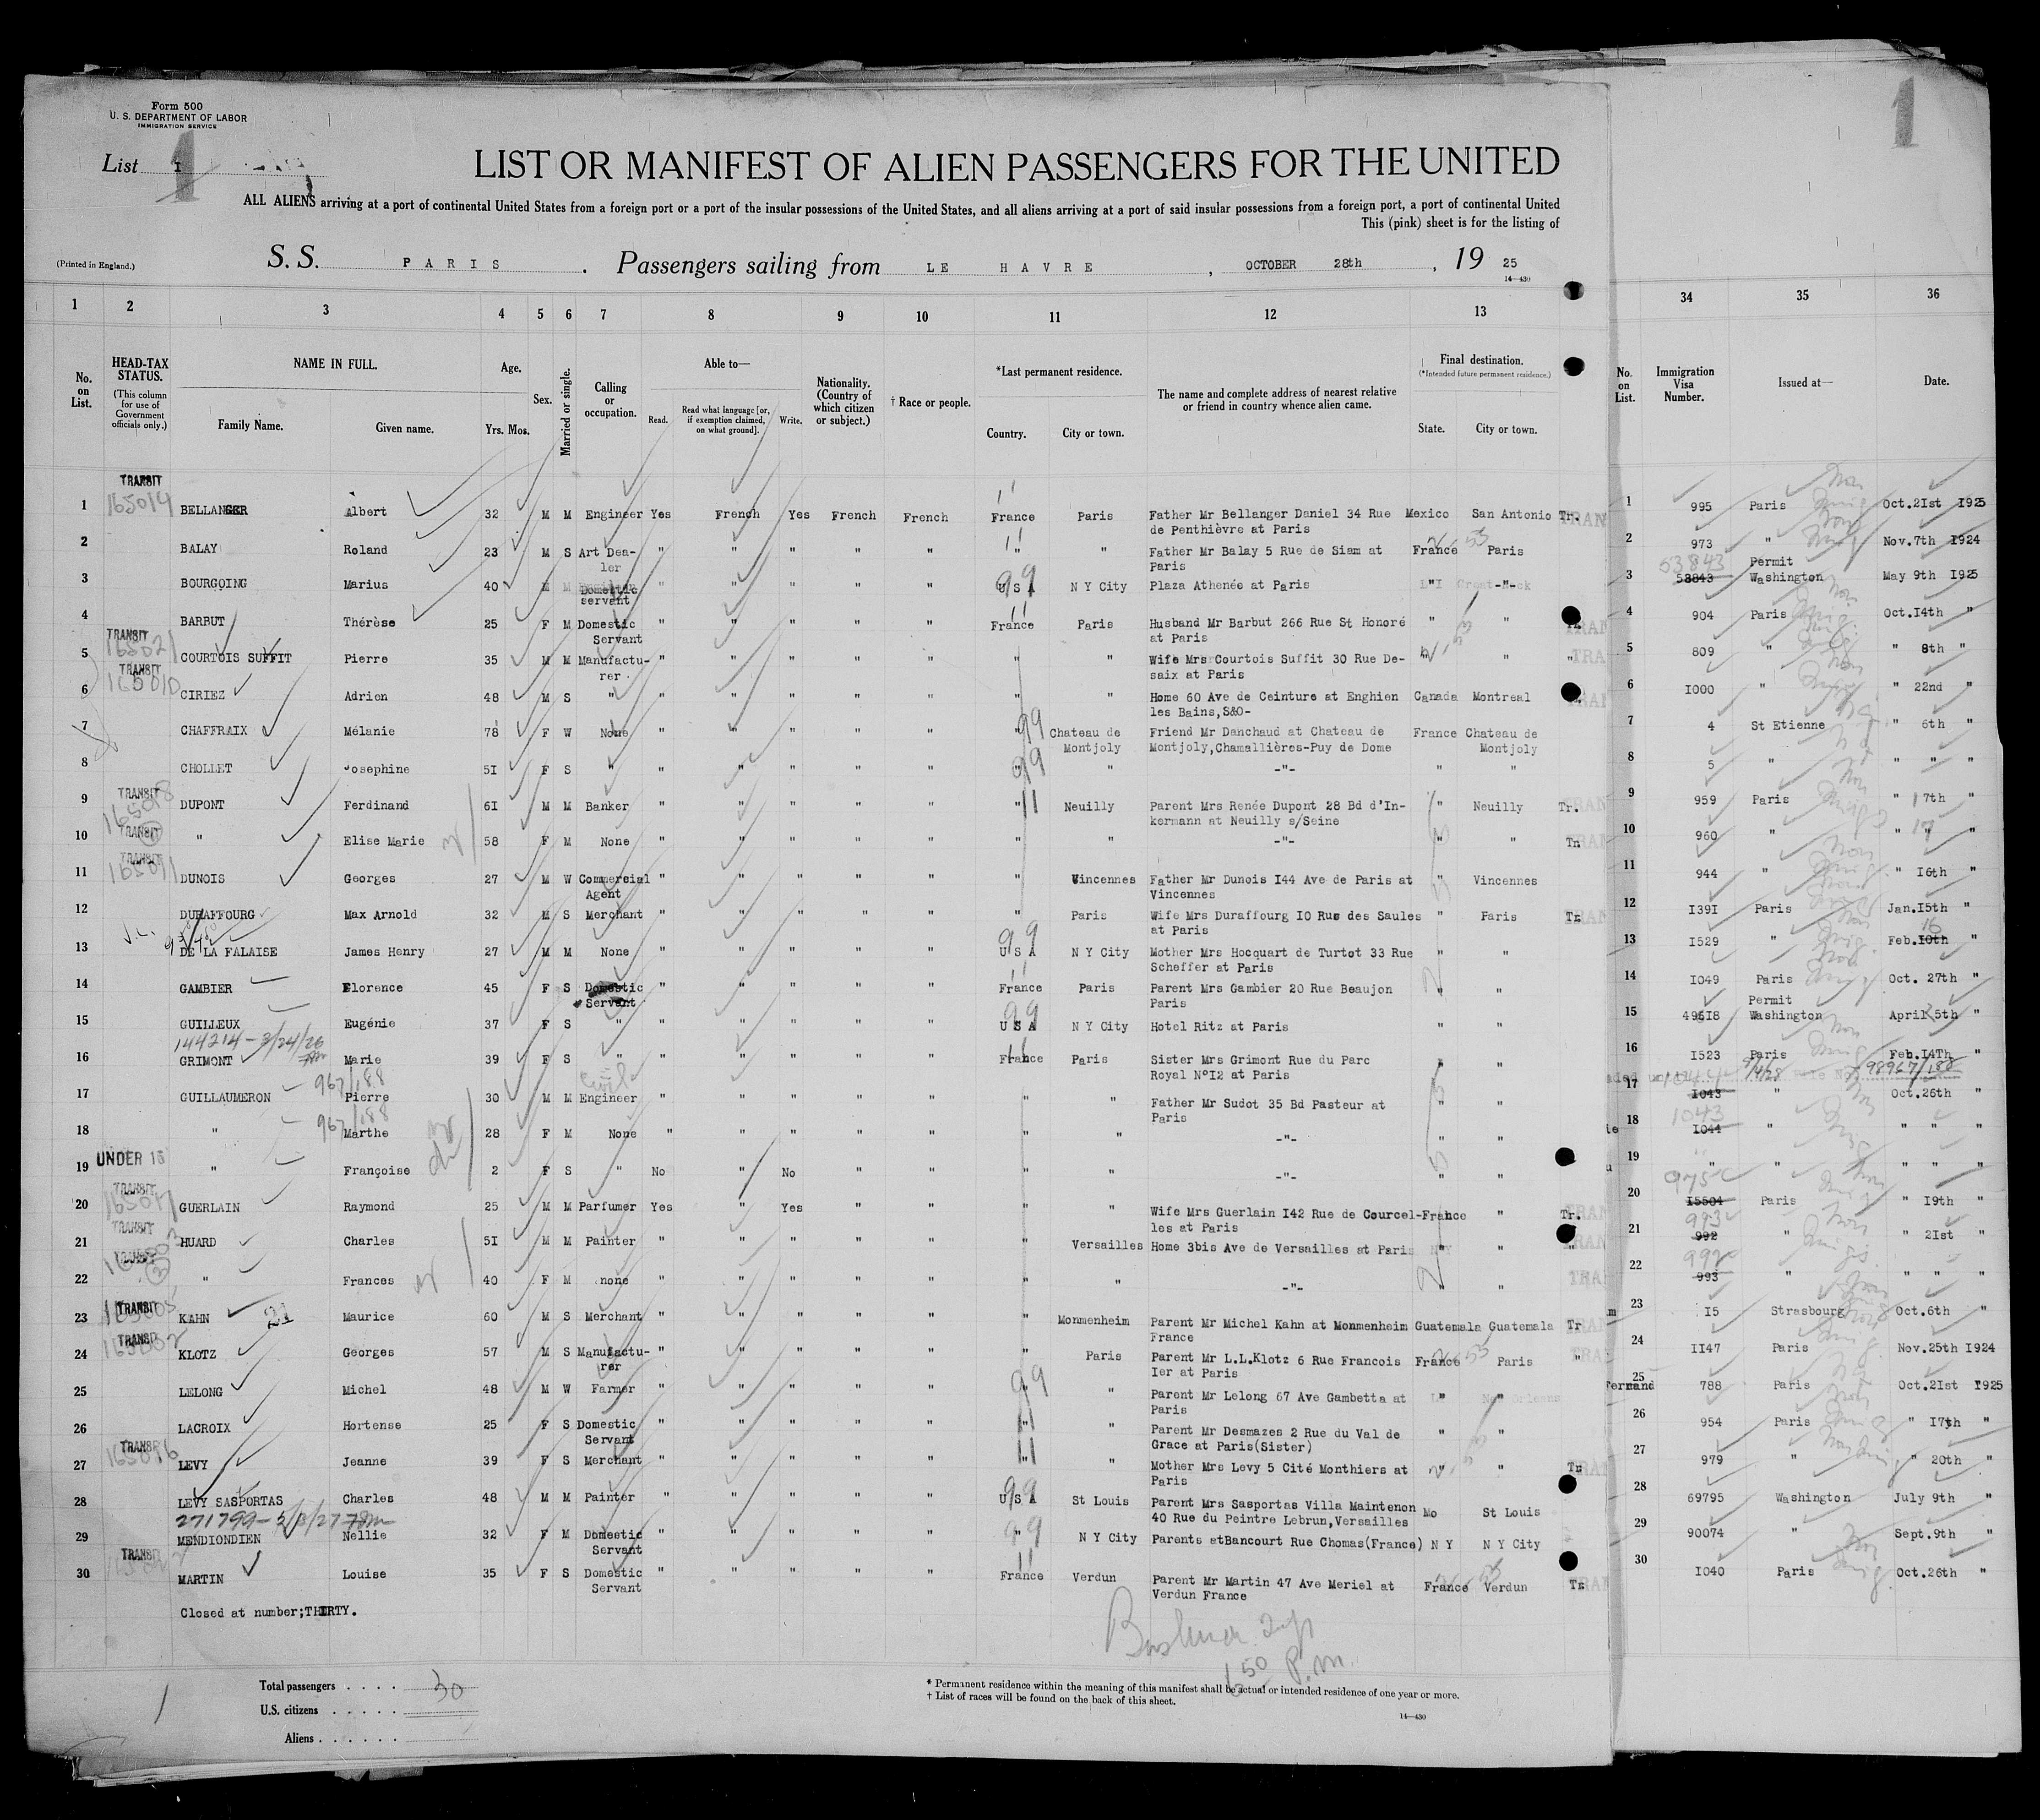 Form 500
U. S. DEPARTMENT OF LABOR
IMMIGRATION SERVICE
1
1
List I
LIST OR MANIFEST OF ALIEN PASSENGERS FOR THE UNITED
ALL ALIENS arriving at a port of continental United States from a foreign port or a port of the insular possessions of the United States, and all aliens arriving at a port of said insular possessions from a foreign port, a port of continental United
This (pink) sheet is for the listing of
(Printed in England.)
S. S. PARIS. Passengers sailing from LE HAVRE, OCTOBER 28th, 19 25
14—430
1 2 3 4 5 6 7 8 9 10 11 12 13 34 35 36
No. on List.
HEAD-TAX STATUS.
(This column for use of Government officials only.)
NAME IN FULL.
Family Name. Given name.
Age.
Yrs. Mos.
Sex.
Married or single.
Calling or occupation.
Able to—
Read. Read what language [or, if exemption claimed, on what ground]. Write.
Nationality. (Country of which citizen or subject.)
† Race or people.
*Last permanent residence.
Country. City or town.
The name and complete address of nearest relative or friend in country whence alien came.
Final destination.
(*Intended future permanent residence.)
State. City or town.
No. on List.
Immigration Visa Number.
Issued at—
Date.
TRANSIT
165014
1 BELLANGER Albert 32 M M Engineer Yes French Yes French French France Paris Father Mr Bellanger Daniel 34 Rue Mexico San Antonio Tr. 1 995 Paris Oct.2Ist I925
de Penthièvre at Paris
2 BALAY Roland 23 M S Art Dea- " " " " " " " Father Mr Balay 5 Rue de Siam at France Paris 2 973 " Nov.7th I924
ler Paris
53843 Permit
3 BOURGOING Marius 40 M M Domestic " " " " " U S A N Y City Plaza Athenée at Paris " -"- 3 53843 Washington May 9th I925
servant
4 BARBUT Thérèse 25 F M Domestic " " " " " France Paris Husband Mr Barbut 266 Rue St Honoré " " 4 904 Paris Oct.I4th "
Servant at Paris
TRANSIT
165021
5 COURTOIS SUFFIT Pierre 35 M M Manufactu- " " " " " " " Wife Mrs Courtois Suffit 30 Rue De- " " " 5 809 " " 8th "
rer saix at Paris
TRANSIT
165010
6 CIRIEZ Adrien 48 M S " " " " " " " " Home 60 Ave de Ceinture at Enghien Canada Montreal 6 I000 " " 22nd "
les Bains,S&O-
7 CHAFFRAIX Mélanie 78 F W None " " " " " " Chateau de Friend Mr Danchaud at Chateau de France Chateau de 7 4 St Etienne " 6th "
Montjoly Montjoly,Chamallières-Puy de Dome Montjoly
8 CHOLLET Josephine 5I F S " " " " " " " " -"- " " 8 5 " " " "
TRANSIT
9 DUPONT Ferdinand 6I M M Banker " " " " " " Neuilly Parent Mrs Renée Dupont 28 Bd d'In- " Neuilly Tr. 9 959 Paris " 17th "
kermann at Neuilly s/Seine
TRANSIT
10 " Elise Marie 58 F M None " " " " " " " -"- " " Tr. 10 960 " " "
TRANSIT
165011
11 DUNOIS Georges 27 M W Commercial " " " " " " Vincennes Father Mr Dunois I44 Ave de Paris at " Vincennes 11 944 " " I6th "
Agent Vincennes
12 DURAFFOURG Max Arnold 32 M S Merchant " " " " " " Paris Wife Mrs Duraffourg I0 Rue des Saules " Paris Tr. 12 I39I Paris Jan.I5th "
at Paris
16
13 DE LA FALAISE James Henry 27 M M None " " " " " U S A N Y City Mother Mrs Hocquart de Turtot 33 Rue " " 13 I529 " Feb.I0th "
Scheffer at Paris
14 GAMBIER Florence 45 F S Domestic " " " " " France Paris Parent Mrs Gambier 20 Rue Beaujon " " 14 I049 Paris Oct. 27th "
Servant Paris
Permit
15 GUILLEUX Eugénie 37 F S " " " " " " U S A N Y City Hotel Ritz at Paris " " 15 495I8 Washington April 5th "
144214 - 3/24/26
16 GRIMONT Marie 39 F S " " " " " " France Paris Sister Mrs Grimont Rue du Parc " " 16 I523 Paris Feb.I4Th "
Royal N°I2 at Paris
98967/188
967/188 Civil
17 GUILLAUMERON Pierre 30 M M Engineer " " " " " " " Father Mr Sudot 35 Bd Pasteur at " " 17 I043 " Oct.26th "
Paris
967/188 1043
18 " Marthe 28 F M None " " " " " " " -"- " " 18 I044 " " " "
UNDER 16
19 " Françoise 2 F S " No " No " " " " -"- " " 19 " " " " "
TRANSIT
165017 975
20 GUERLAIN Raymond 25 M M Parfumer Yes " Yes " " " " Wife Mrs Guerlain I42 Rue de Courcel-France " Tr. 20 I5504 Paris " I9th "
les at Paris
TRANSIT
993
21 HUARD Charles 5I M M Painter " " " " " " Versailles Home 3bis Ave de Versailles at Paris " " " 21 992 " " 2Ist "
992
22 " Frances 40 F M none " " " " " " " -"- " " 22 993 " " " "
TRANSIT
23 KAHN 21 Maurice 60 M S Merchant " " " " " " Monmenheim Parent Mr Michel Kahn at Monmenheim Guatemala Guatemala Tr 23 I5 Strasbourg Oct.6th "
France
TRANSIT
24 KLOTZ Georges 57 M S Manufactu- " " " " " " Paris Parent Mr L.L.Klotz 6 Rue Francois France Paris " 24 II47 Paris Nov.25th I924
rer Ier at Paris
25 LELONG Michel 48 M W Farmer " " " " " " " Parent Mr Lelong 67 Ave Gambetta at " New Orleans 25 Fernand 788 Paris Oct.2Ist I925
Paris
26 LACROIX Hortense 25 F S Domestic " " " " " " " Parent Mr Desmazes 2 Rue du Val de " " 26 954 Paris " I7th "
Servant Grace at Paris(Sister)
TRANSIT
165016
27 LEVY Jeanne 39 F S Merchant " " " " " " Mother Mrs Levy 5 Cité Monthiers at " " Tr 27 979 " " 20th "
Paris
28 LEVY SASPORTAS Charles 48 M M Painter " " " " " U S A St Louis Parent Mrs Sasportas Villa Maintenon Mo St Louis 28 69795 Washington July 9th "
40 Rue du Peintre Lebrun,Versailles
271799 - 3/3/27
29 MENDIONDIEN Nellie 32 F M Domestic " " " " " " N Y City Parents atBancourt Rue Chomas(France) N Y N Y City 29 90074 " Sept.9th "
Servant
TRANSIT
30 MARTIN Louise 35 F S Domestic " " " " " France Verdun Parent Mr Martin 47 Ave Meriel at France Verdun Tr 30 I040 Paris Oct.26th "
Servant Verdun France
Closed at number;THIRTY.
6 50 P.M.
Total passengers . . . . 30
U.S. citizens . . . . .
Aliens . . . . . .
* Permanent residence within the meaning of this manifest shall be actual or intended residence of one year or more.
† List of races will be found on the back of this sheet.
14—430